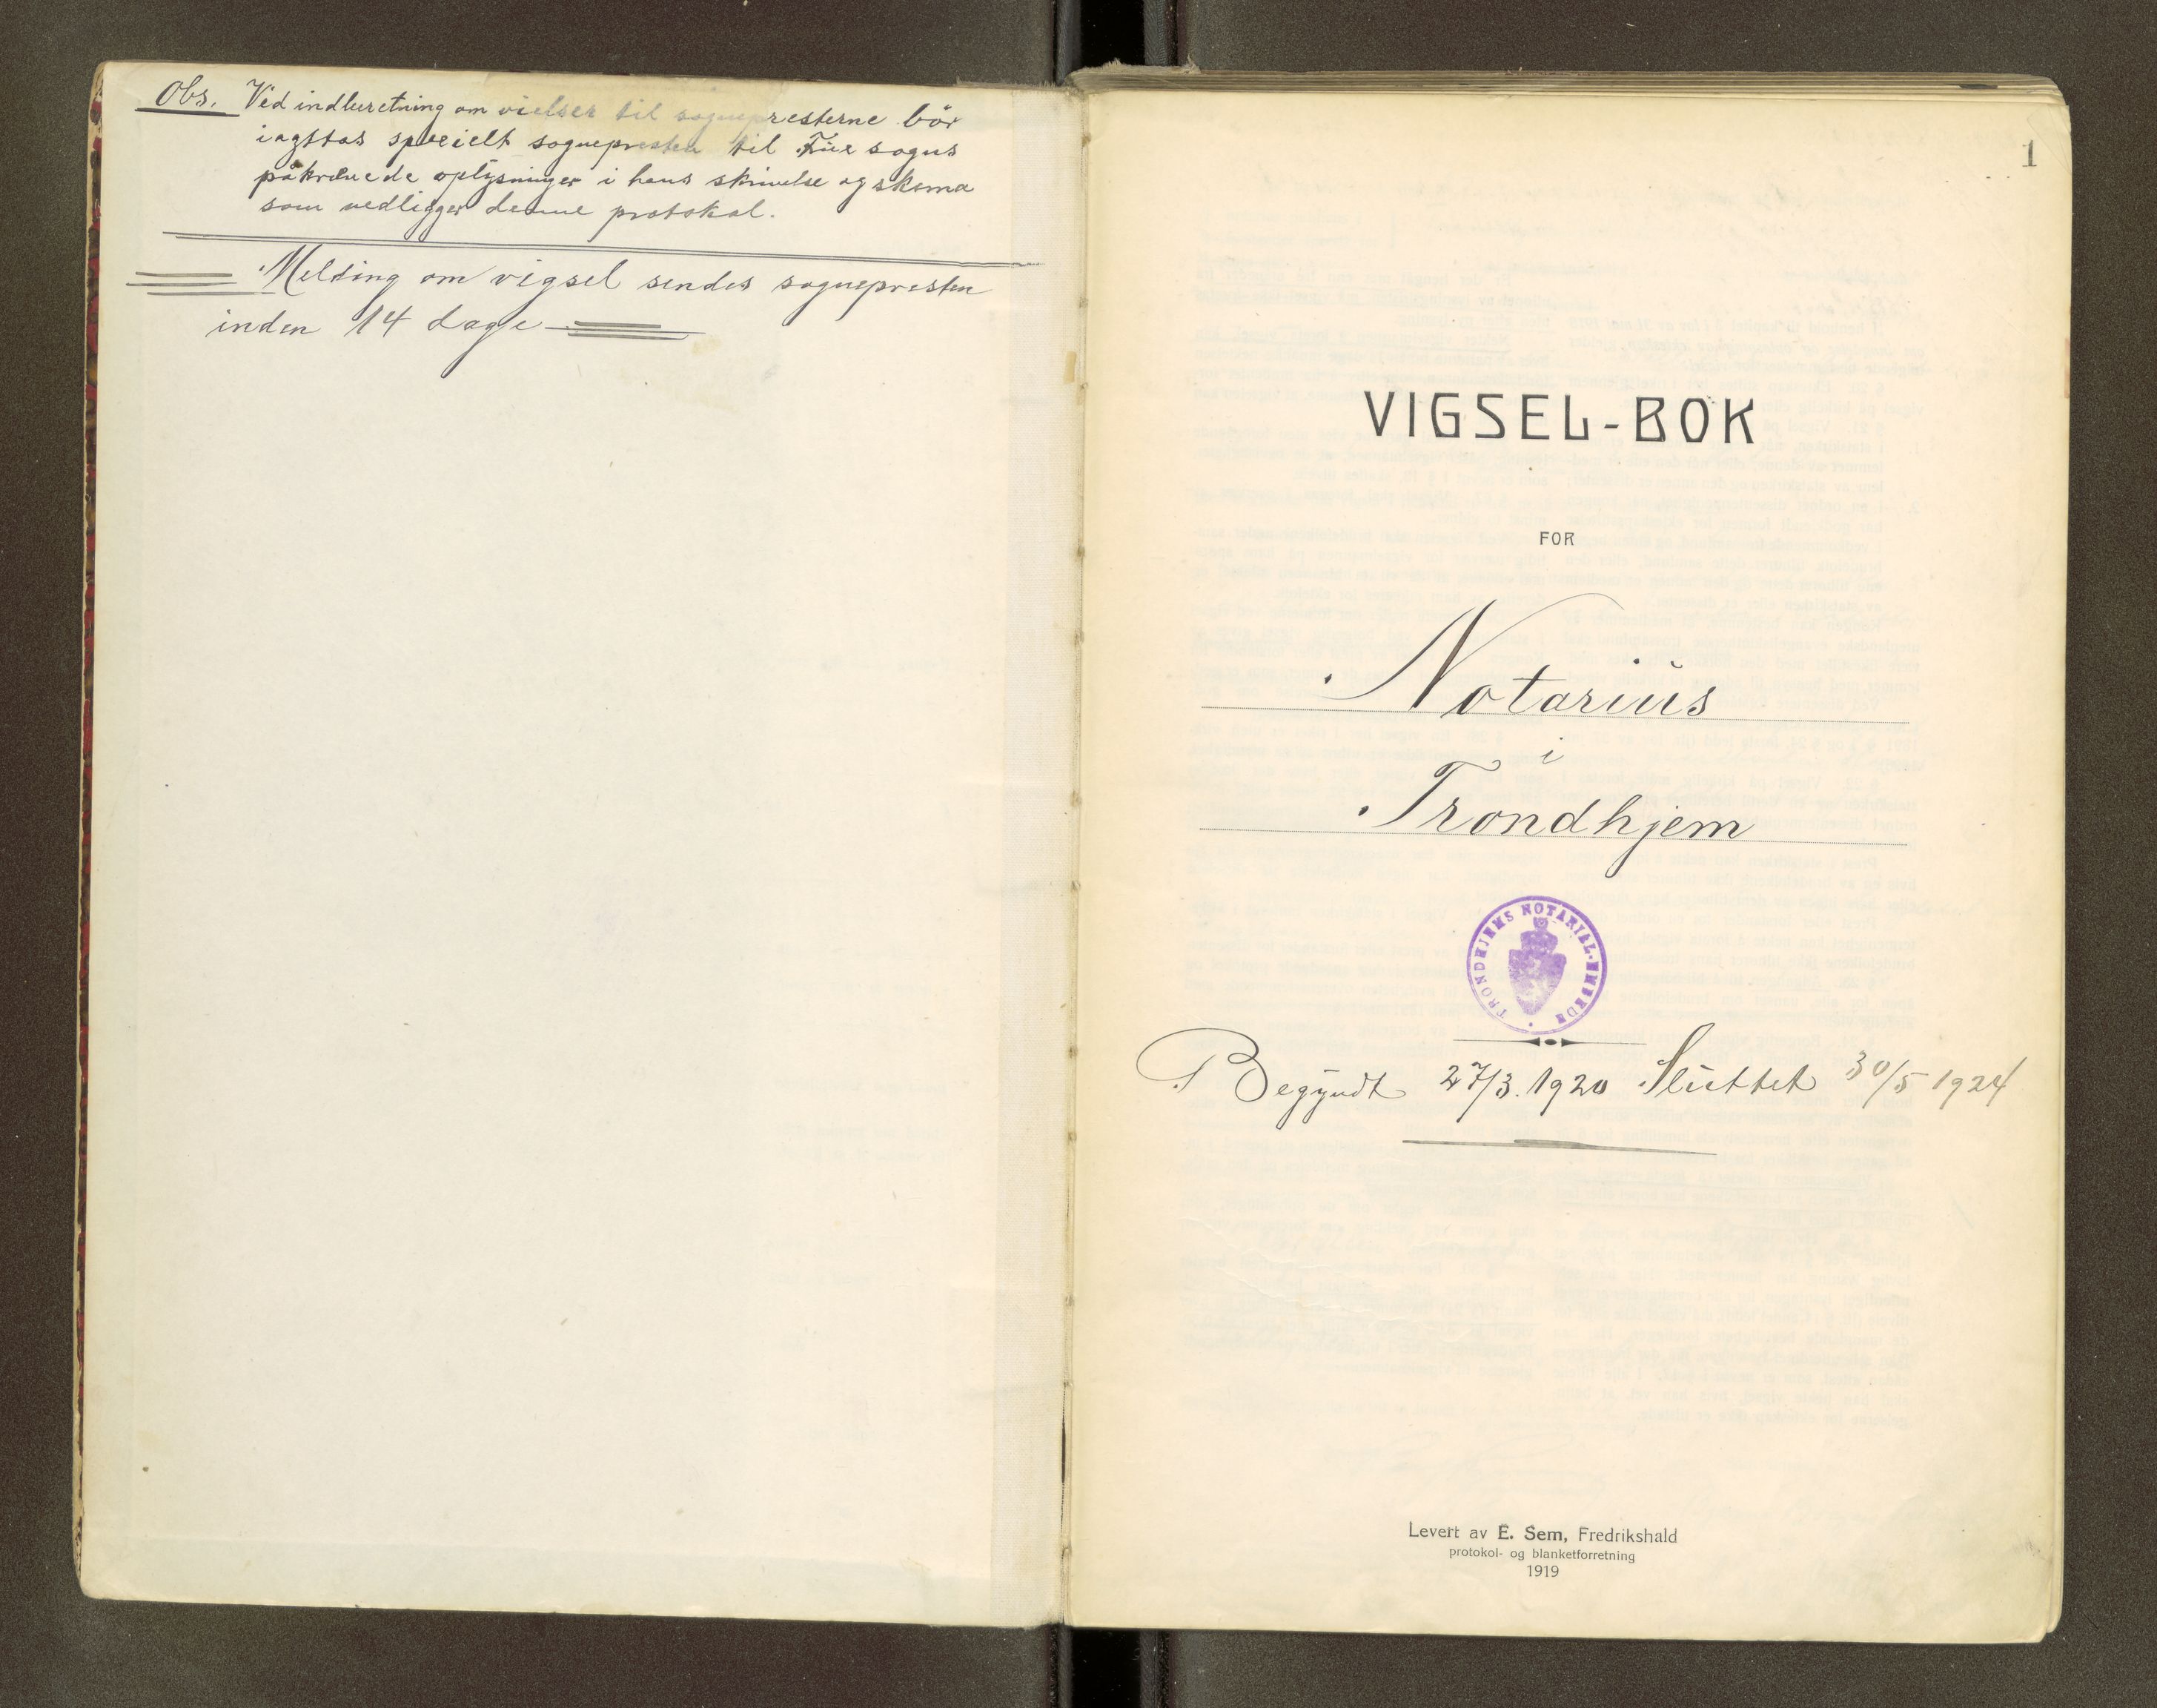 Obs. Ved indberetning om vielser til sognepresterne bör
iagttas specielt sognepresten til sogns
påkrævede oplysninger i hans skrivelse og skema
som vedligger denne protokol.
Melding om vigsel sendes sognepresten
inden 14 dage
1
VIGSEL-BOK
FOR
Notarius
i
Trondhjem
TRONDHJEMS NOTARIAL-EMBEDE
Begyndt 27/3. 1920 Sluttet 30/5 1924
Levert av E. Sem, Fredrikshald
protokol- og blanketforretning
1919